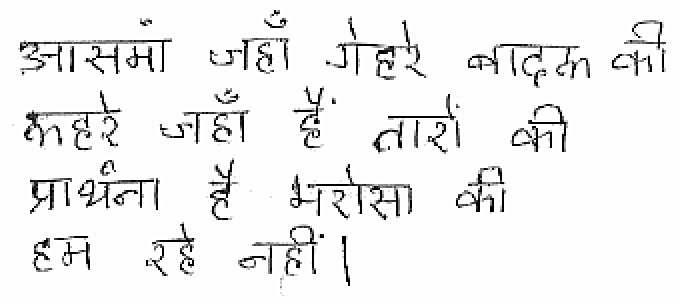 आसमां जहाँ गेहरे बादल की
लहरे जहाँ हैं तारों की
प्रार्थना है भरोसा की
हम रहे नहीं।